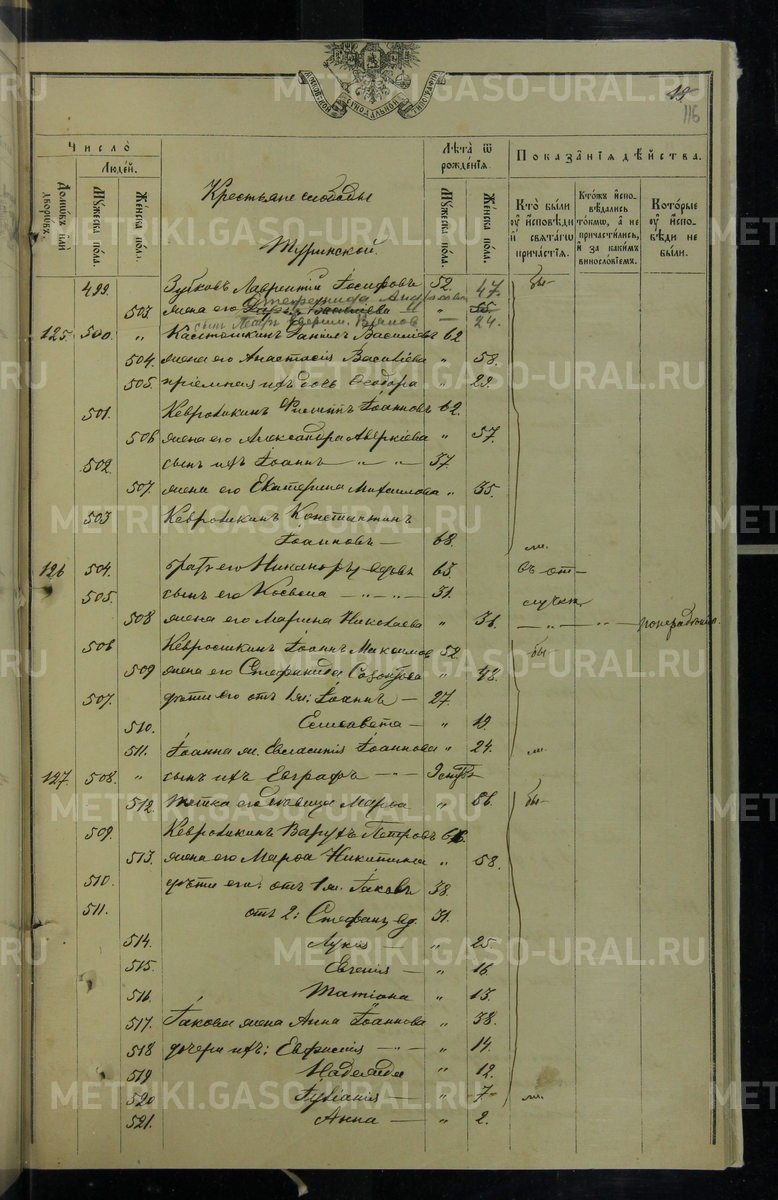 METRIKI.GASO-URAL.RU
19
116
Число̀
Людéй.
Домѡ́въ и҆лѝ дворѡ́въ.
Мꙋ́жеска по́ла.
Же́нска по́ла.
Крестьяне слободы
Туринской.
Лѣ́та ѿ рожде́нїѧ.
Мꙋ́жеска по́ла.
Же́нска по́ла.
Показа̑нїѧ дѣ́йства.
Кто̀ бы́ли ᲂу҆ и҆́сповѣди и҆ свѧта́гѡ прича́стїѧ.
Кто́жъ и҆сповѣ́дались то́кмѡ, а҆ не причасти́лись, и҆ за каки́мъ виносло́вїемъ.
Кото́рые ᲂу҆ и҆́сповѣди не бы́ли.
499. Зубковъ Лаврентій Іосифовъ 52. бы-
503 жена его " 47.
24.
125. 500. " Касьтошкинъ Даніилъ Василіевъ 62
504. жена его Анастасія Василіева " 53.
505. пріемная ихъ дочь Ѳеодора " 29.
501. Кеврошкинъ Филиппъ Іоанновъ 62.
506 жена его Александра Аверкіева " 57.
502. сынъ ихъ Іоаннъ — " — " — 37.
507. жена его Екатерина Михаилова " 35.
503 Кеврошкинъ Константинъ
Іоанновъ — 68. ли.
126 504. братъ его Никаноръ, вдовъ 63. въ от-
505. сынъ его Косьма — " — " — 31. лучкѣ
508 жена его Марина Николаева " 31. — " —
506 Кеврошкинъ Іоаннъ Максимовъ 52. бы-
509 жена его Стефанида Созонтова " 48.
507. дѣти его отъ 1 ж: Іоаннъ — 27.
510. Елисавета — " 19.
511. Іоанна ж. Евгвенія Іоаннова " 24. ли.
127. 508. " сынъ ихъ Евграфъ — " —
512. тетка его дѣвица Марѳа " 56. бы-
509. Кеврошкинъ Варухъ Петровъ 66.
513. жена его Марѳа Никитина " 58.
510. дѣти его: отъ 1 ж. Іаковъ 38
511. отъ 2: Стефанъ, вд. 31.
514. Лукія — " 25.
515. Евгенія — " 16.
516. Татіана " 13.
517. Іакова жена Анна Іоаннова " 38.
518 дочери ихъ: Евфросинія — " — " 14.
519 Надежда " 12.
520 Іуліанія — " 7 ли.
521. Анна — " 2.